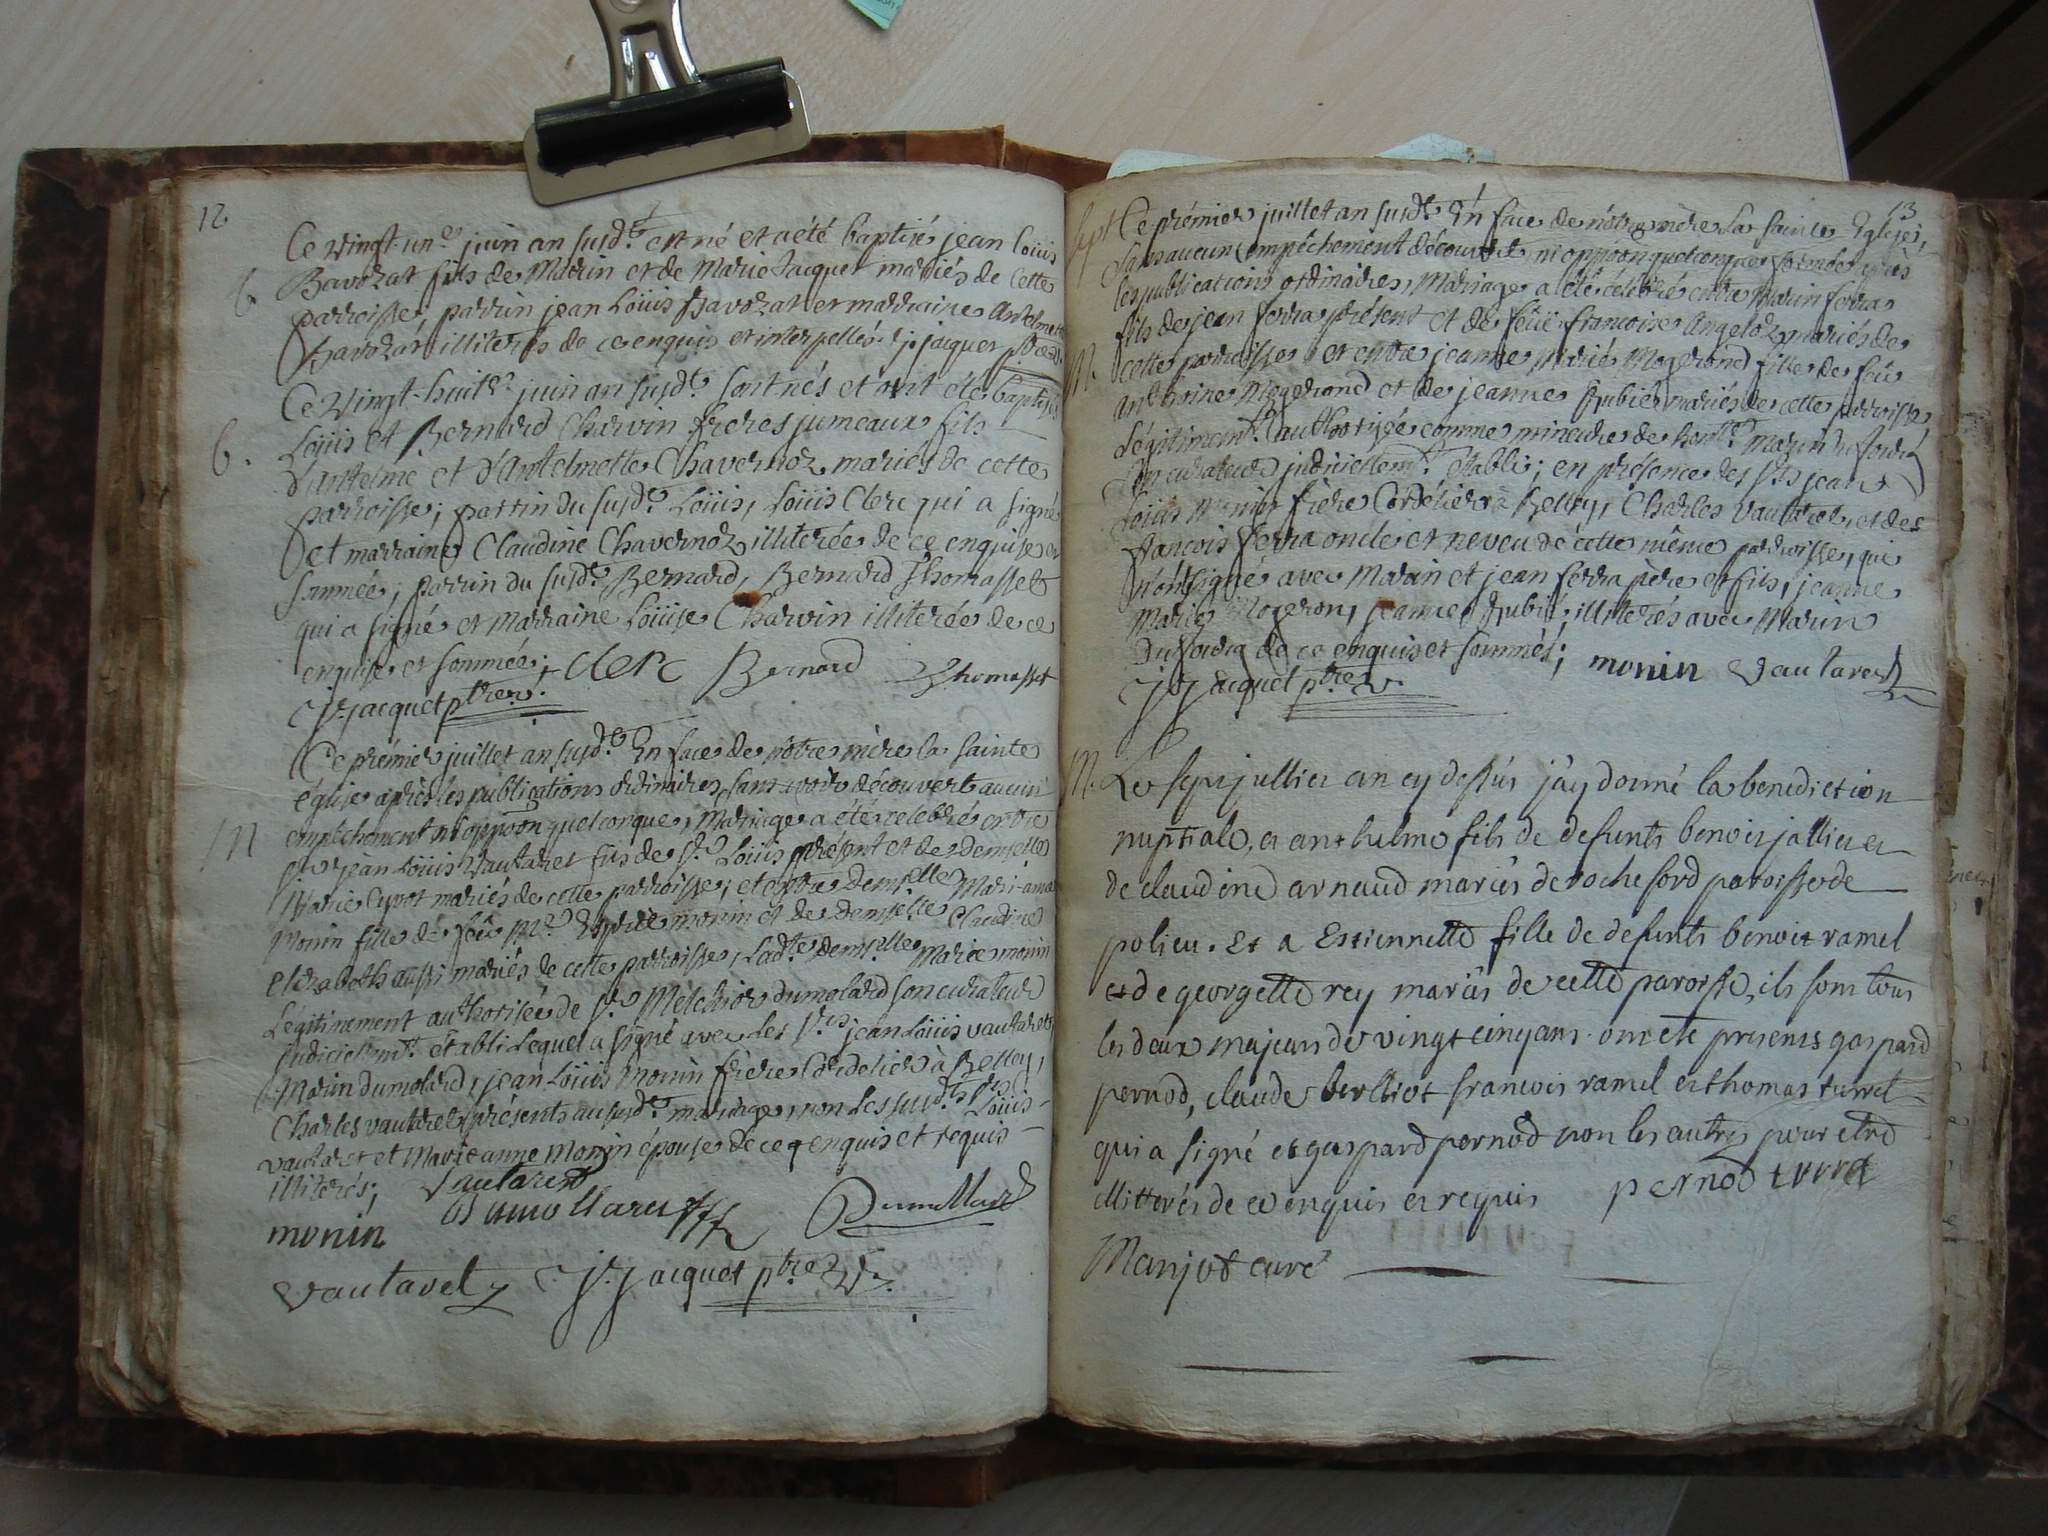 12.
Ce vingt-un.e juin an susd.t est né et a été baptisé jean Louis
b. Bavozat fils de Marin et de Marie Jacquet mariés de cette
parroisse, parrin jean Louis Bavozat et marraine Antelmette
illiterés de ce enquis et interpellés. j: jacquet ptre
Ce vingt-huit.e juin an susd.t sont nés et ont été baptisés
b. Loüis et Bernard Charvin freres jumeaux fils
d'Antelme et d'Antelmette Chavernoz mariés de cette
parroisse; parrin du susd.t Loüis, Loüis Clerc qui a signé
et marraine Claudine Chavernoz illiterée de ce enquise et
sommée; parrin du susd.t Bernard, Bernard Thomasset
qui a signé et marraine Loüise Charvin illiterée de ce
enquise et sommée; clerc Bernard Thomasset
J: jacquet ptre
Ce prémier juillet an susd.t En face de nôtre mère la sainte
église après les publications ordinaires, sans avoir découvert aucun
M empêchement ni oppõon quelconque, Mariage a été celebré entre
s.r jean Loüis Vautaret fils de s.r Loüis présent et de demselle
Marie Cyvot mariés de cette parroisse; et entre demselle Mari-anne
Monin fille de feû M.e monin et de demselle Claudine
Elizabeth aussi mariés de cette parroisse, lad.te demselle Marie monin
Légitimement authorisée de s.r Mélchior dumolard son curateur
judiciellem.t établi Lequel a signé avec les s.rs jean Loüis vautaret,
Marin dumolard, jean Loüis Monin frère Cordelier à Belley,
Charles vautaret présents au susd.t mariage, non les susd.ts s.rs Loüis
vautaret et Marie anne Monin épouse de ce enquis et requis
illiterés; Vautaret
monin Dumollard
vautaret J: Jacquet ptre
13
Ce prémier juillet an susd.t En face de nôtre mère la sainte Eglise,
sans aucun empêchement découvert, ni oppõon quelconque après
les publications ordinaires, Mariage a été célébré entre Marin ferra
fils de jean ferra présent et de feüe francoise Angeloz mariés de
M. cette parroisse et entre jeanne Marie Mogerond fille de feû
anthoine Mogerond et de jeanne Rubié mariés de cette parroisse,
Légitimem.t authorizée comme mineure de hon.te Marin
son curateur judiciellem.t établi; en présence des s.rs jean
Loüis Monin frère Cordélier à Belley, Charles Vautaret, et de
françois ferra oncle et neveu de cette même parroisse, qui
n'ont signé avec Marin et jean ferra père et fils, jeanne
Marie Mogeron, jeanne Rubié, illiterés avec Marin
de ce enquis et sommés; monin Vautaret
J: Jacquet ptre
M. Le sept jullier an cy dessus j'ay donné la benediction
nuptiale, a anthelme fils de defunts benoit jallier et
de claudine arnaud mariés de rocheford paroisse de
polieu. Et a Estiennette fille de defunts benoit ramel
et de georgette rey mariés de cette paroisse, ils sont tous
les deux majeurs de vingt cinq ans. ont ete presents gaspard
pernod, claude berlliot francois ramel et thomas turrel
qui a signé et gaspard pernod non les autres pour etre
illitterés de ce enquis et requis pernod turrel
Manjot curé